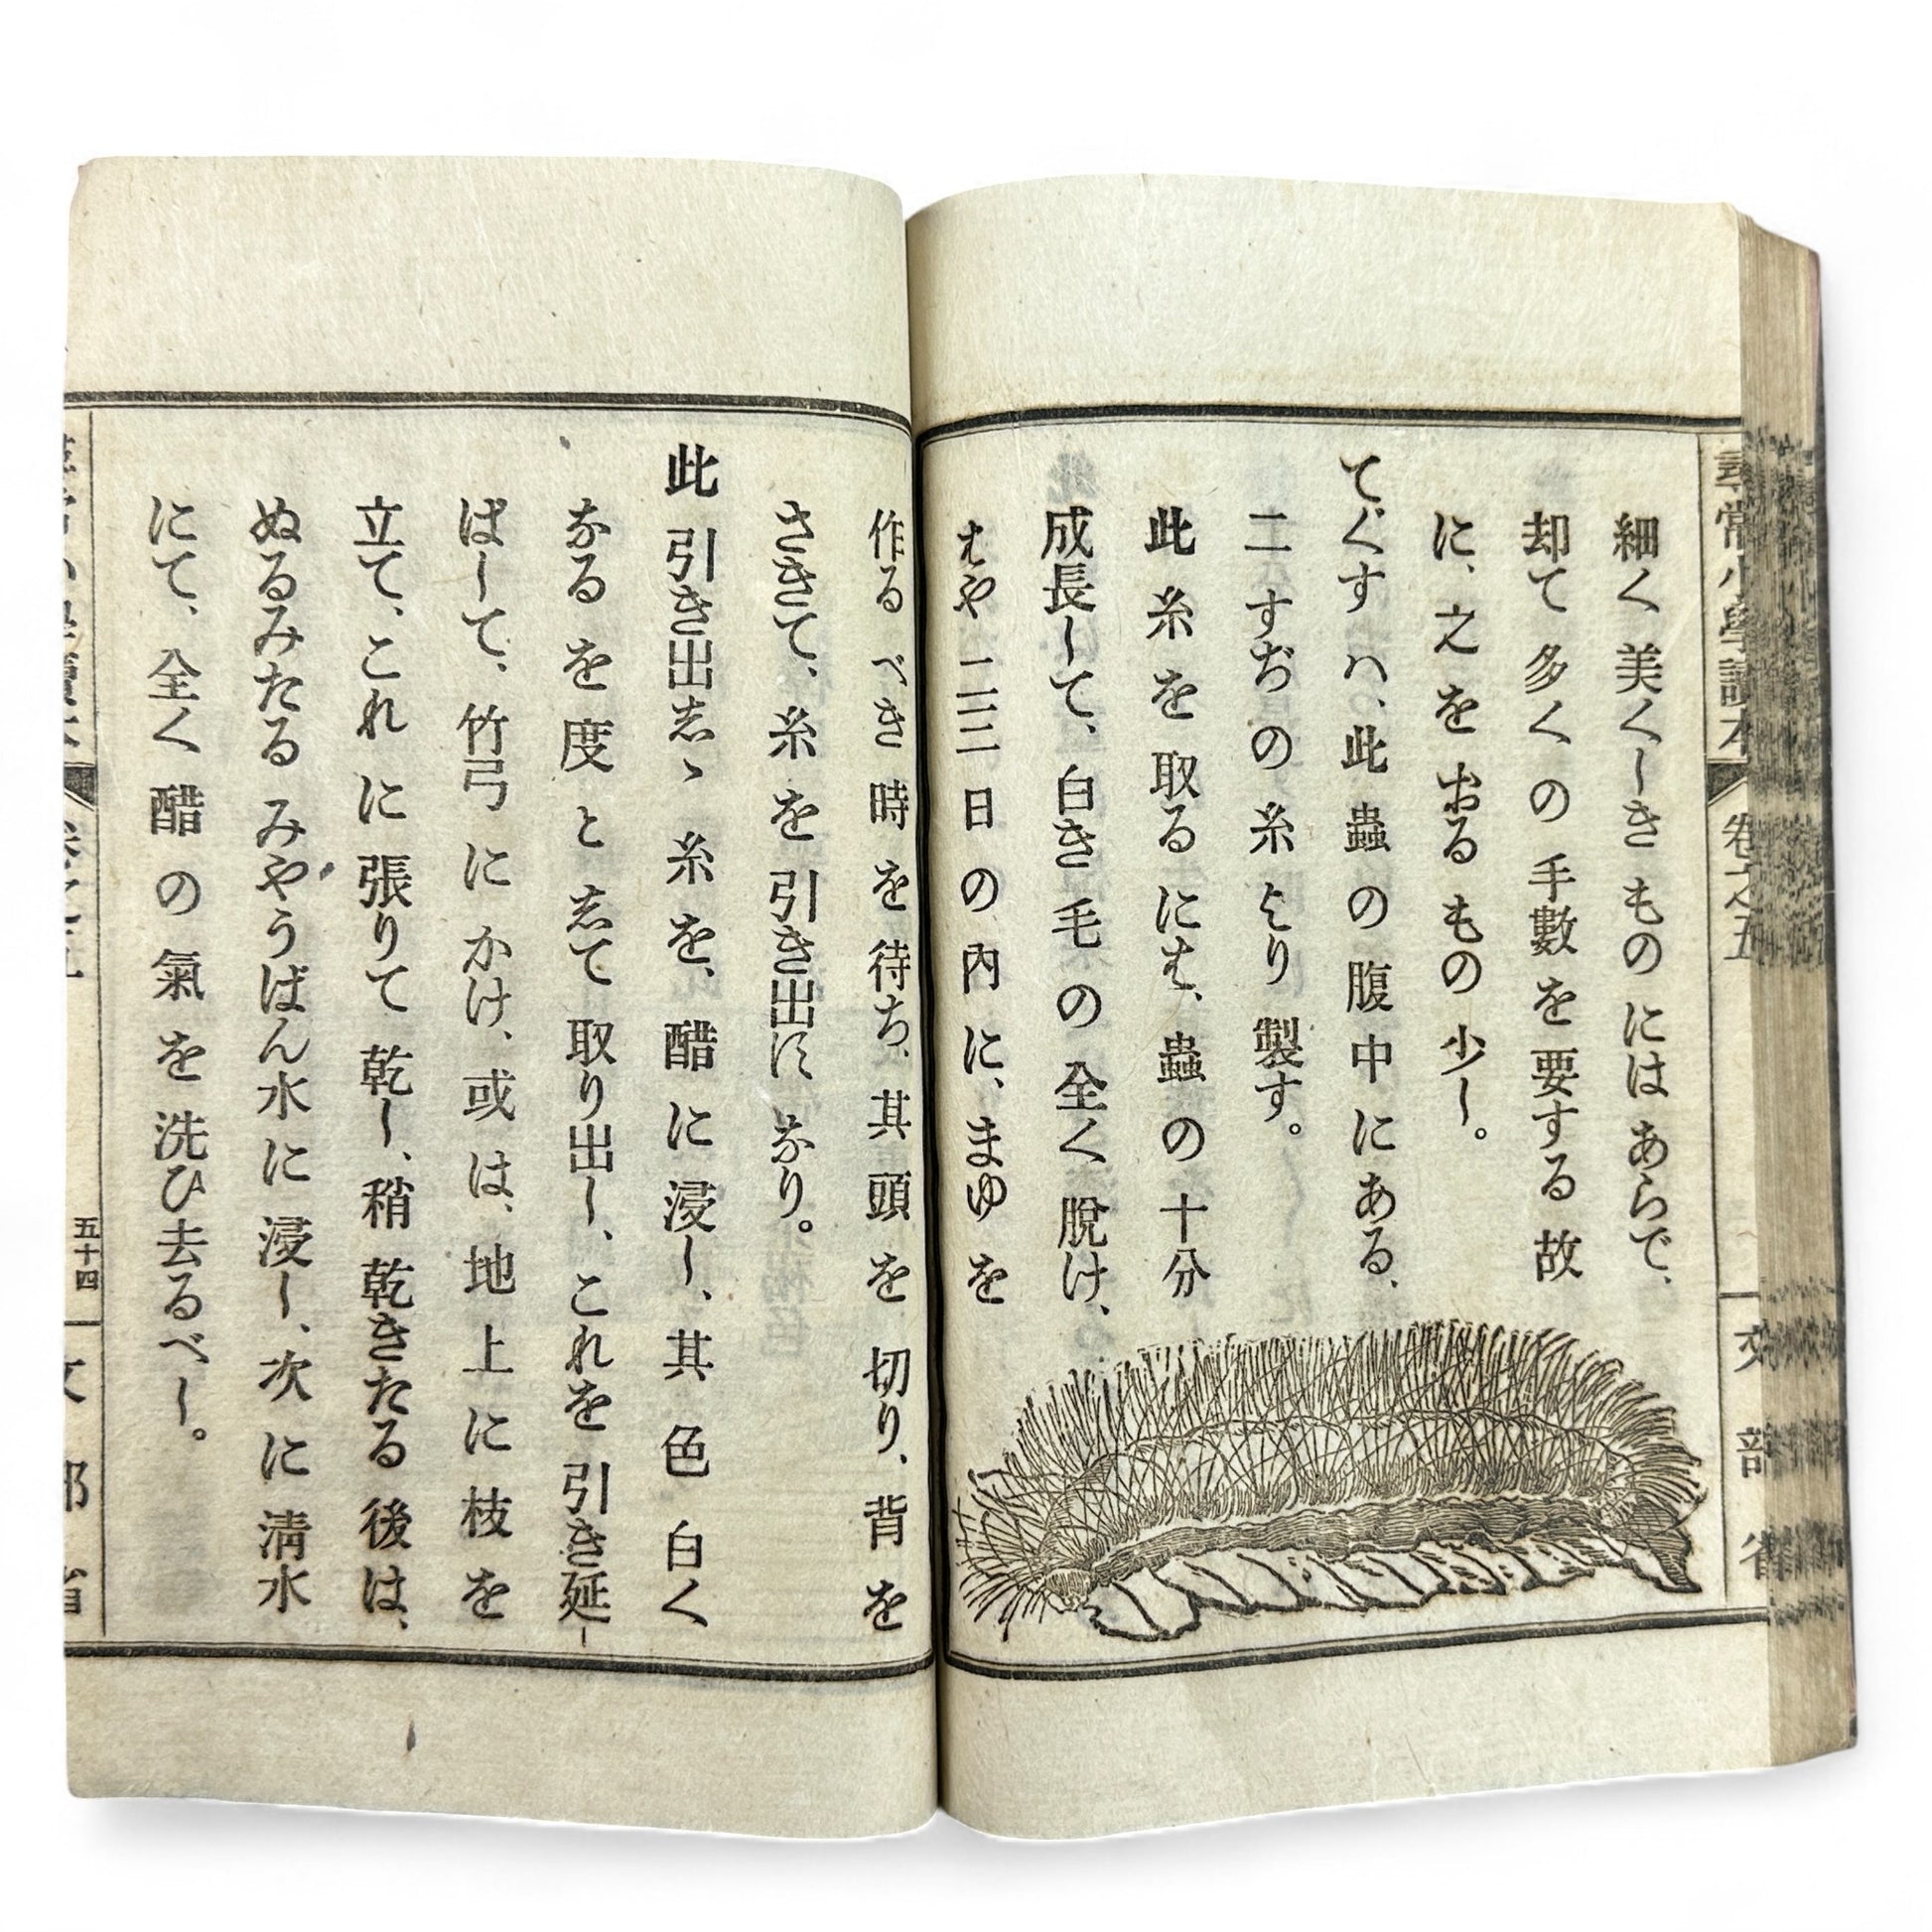 尋常小學讀本 卷之五 文部省
細く 美くしき もの には あらで、
却て 多くの 手數 を 要する 故
に、之 を おる もの 少し。
てぐす ハ、此 蟲 の 腹中 に ある、
二すぢ の 糸 より 製す。
此 糸 を 取る には、蟲 の 十分
成長して、白き 毛 の 全く 脱け、
はや 二三日 の 內 に、まゆ を
作る べき 時 を 待ち、其 頭 を 切り、背 を
さきて、糸 を 引き出す なり。
此 引き出しゝ 糸 を、醋 に 浸し、其 色 白く
なる を 度 と して 取り出し、これを 引き延
ばして、竹弓 に かけ、或 は、地 上 に 枝 を
立て、これ に 張りて 乾し、稍 乾きたる 後 は、
ぬるみたる みやうばん水 に 浸し、次 に 清水
にて、全く 醋 の 氣 を 洗ひ去るべし。
五十四